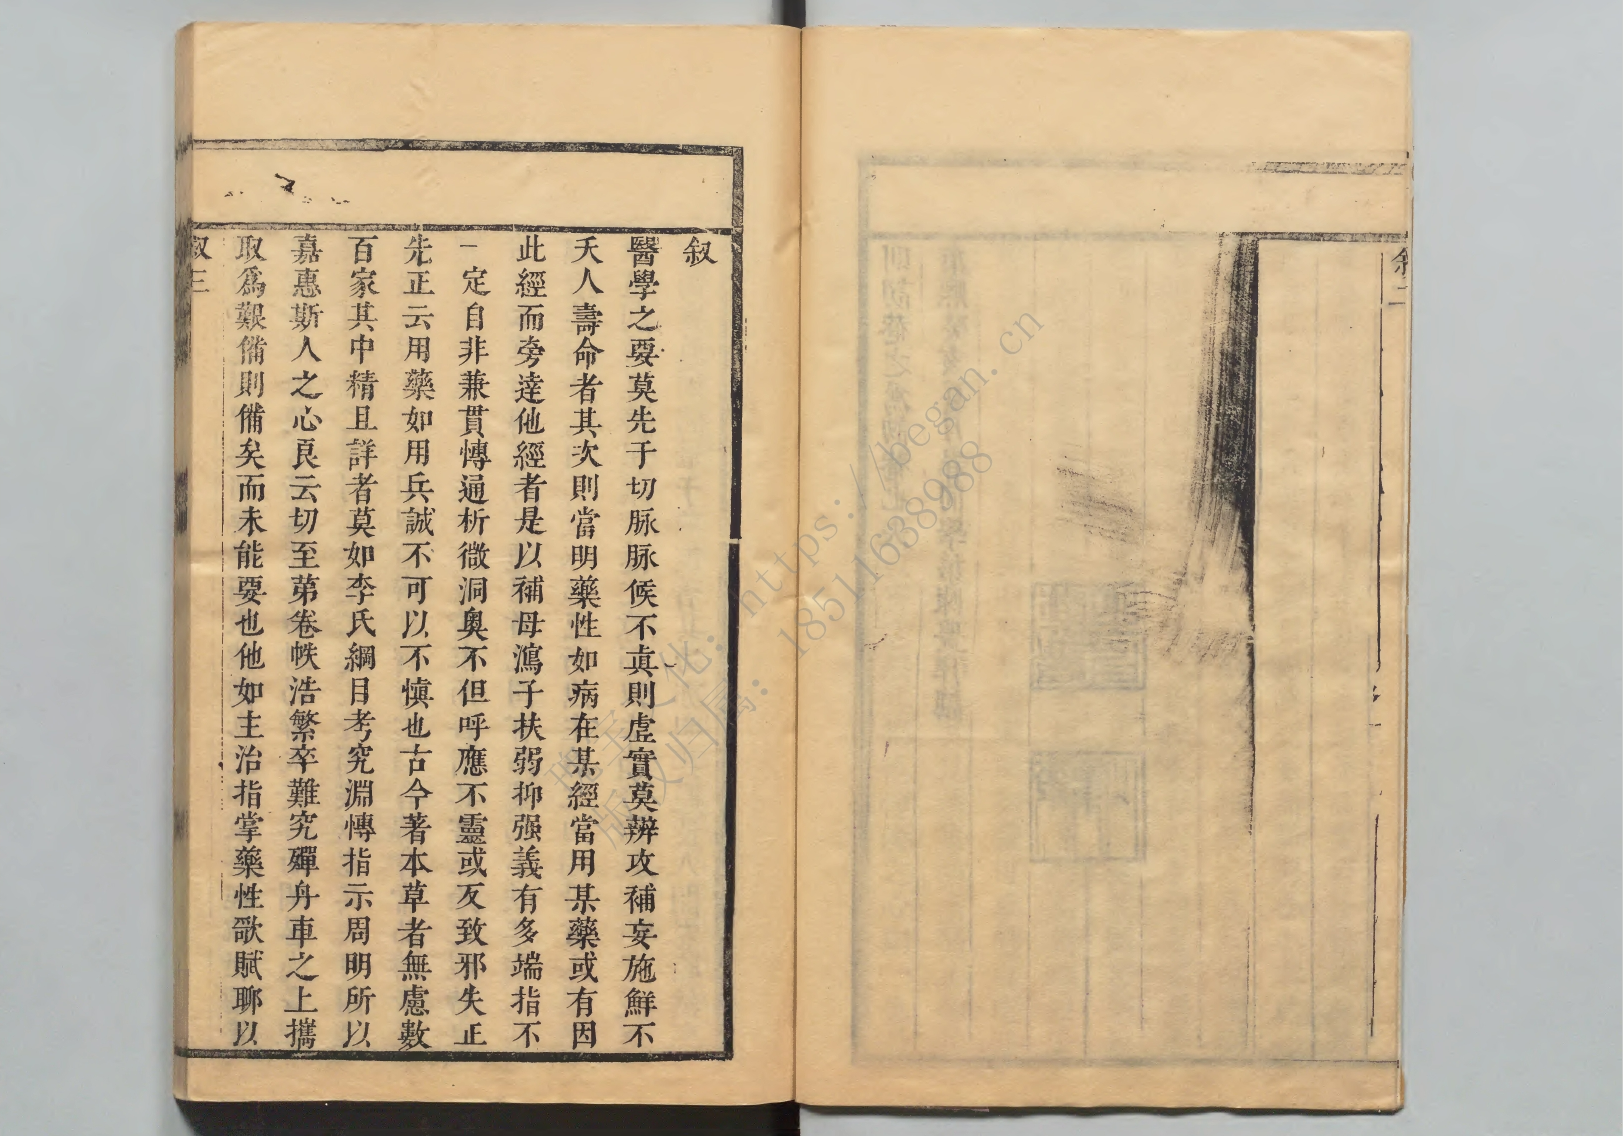 叙二
叙
醫學之要莫先于切脉脉候不真則虛實莫辨攻補妄施鮮不
夭人壽命者其次則當明藥性如病在某經當用某藥或有因
此經而旁達他經者是以補母瀉子扶弱抑强義有多端指不
一定自非兼貫慱通析微洞奥不但呼應不靈或反致邪失正
先正云用藥如用兵誠不可以不慎也古今著本草者無慮數
百家其中精且詳者莫如李氏綱目考究淵慱指示周明所以
嘉惠斯人之心良云切至第卷帙浩繁卒難究殫舟車之上攜
取爲艱備則備矣而未能要也他如主治指掌藥性歌賦聊以
叙三
https://began.cn
18511638988
版权归属: